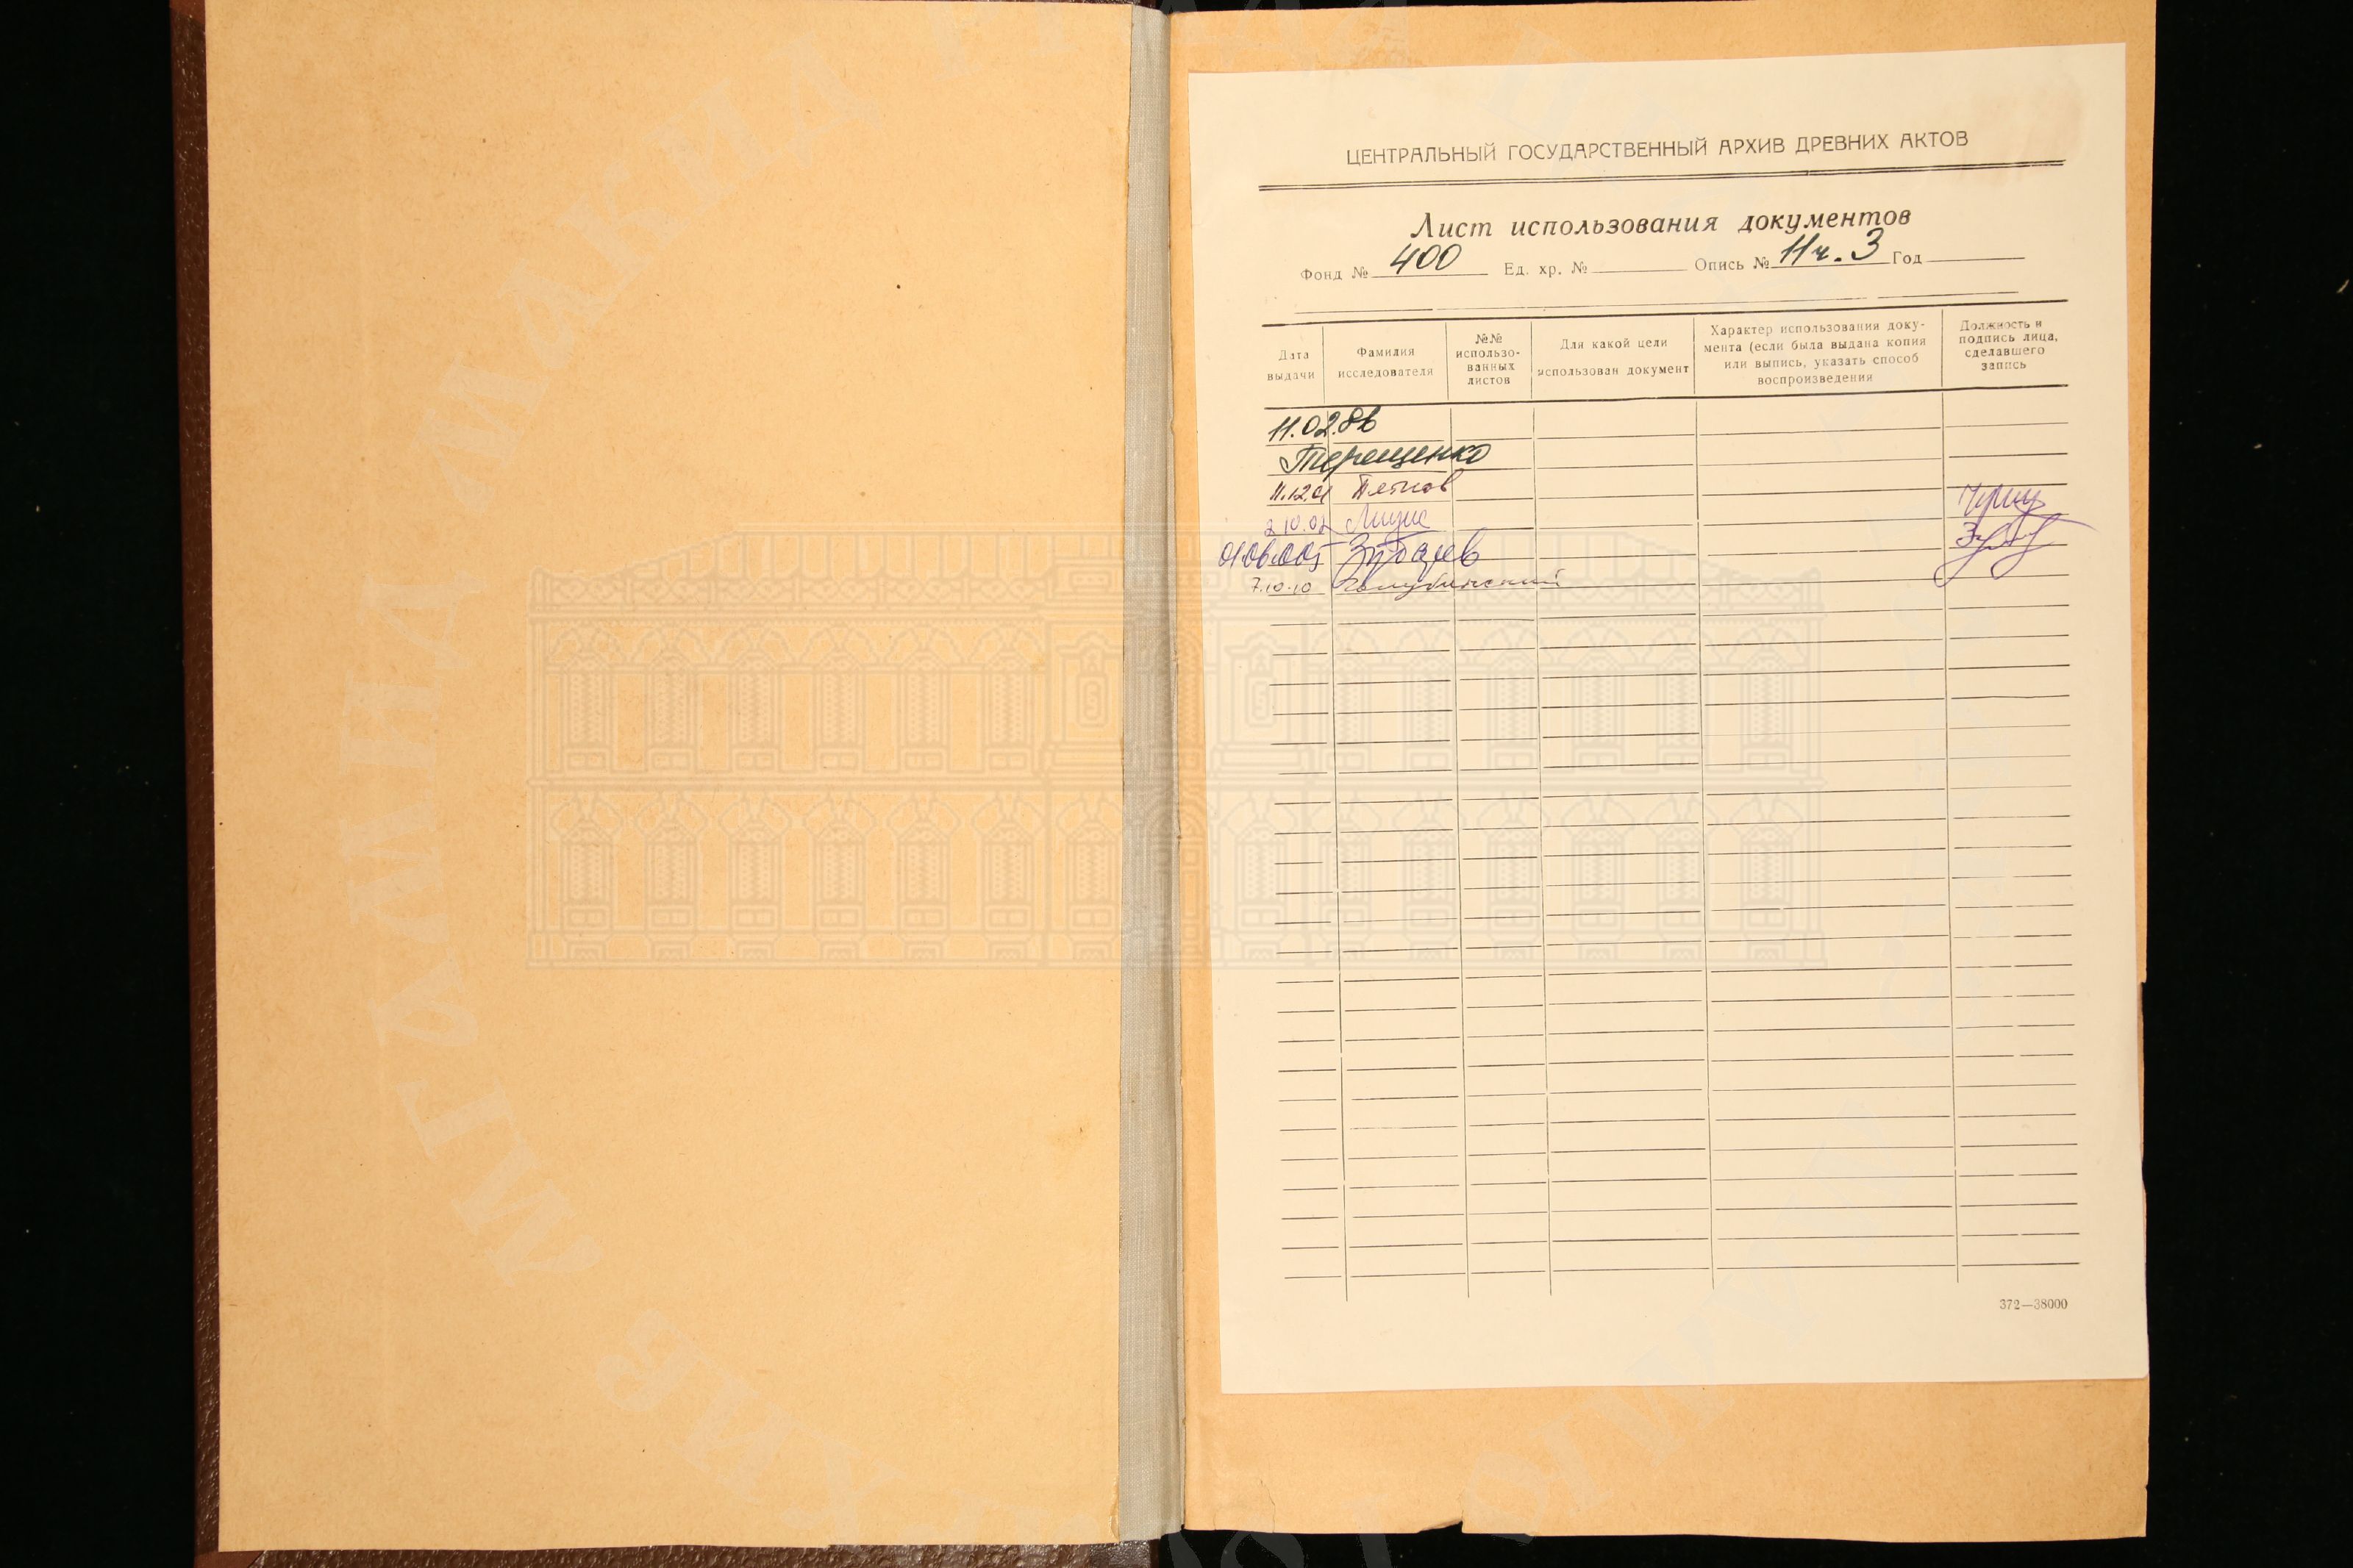 ЦЕНТРАЛЬНЫЙ ГОСУДАРСТВЕННЫЙ АРХИВ ДРЕВНИХ АКТОВ
Лист использования документов
Фонд № 400 Ед. хр. № Опись № 11 ч. 3 Год
Дата выдачи
Фамилия исследователя
№№ использо-
ванных
листов
Для какой цели
использован документ
Характер использования доку-
мента (если была выдана копия
или выпись, указать способ
воспроизведения
Должность и
подпись лица,
сделавшего
запись
11.02.86
Терещенко
11.12.01
2.10.02
01.06.005
7.10.10 Голубинский
372—38000